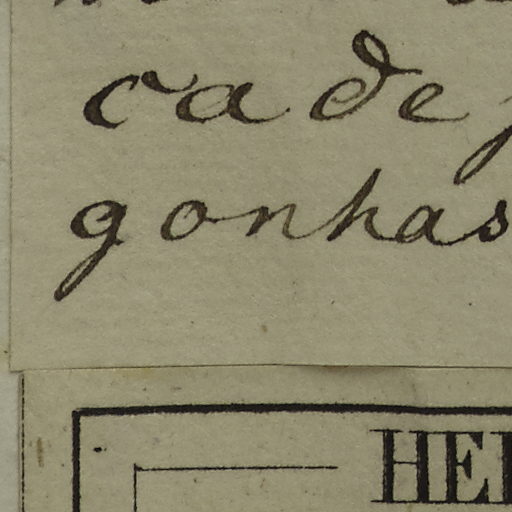 ca de
gonhas
HE